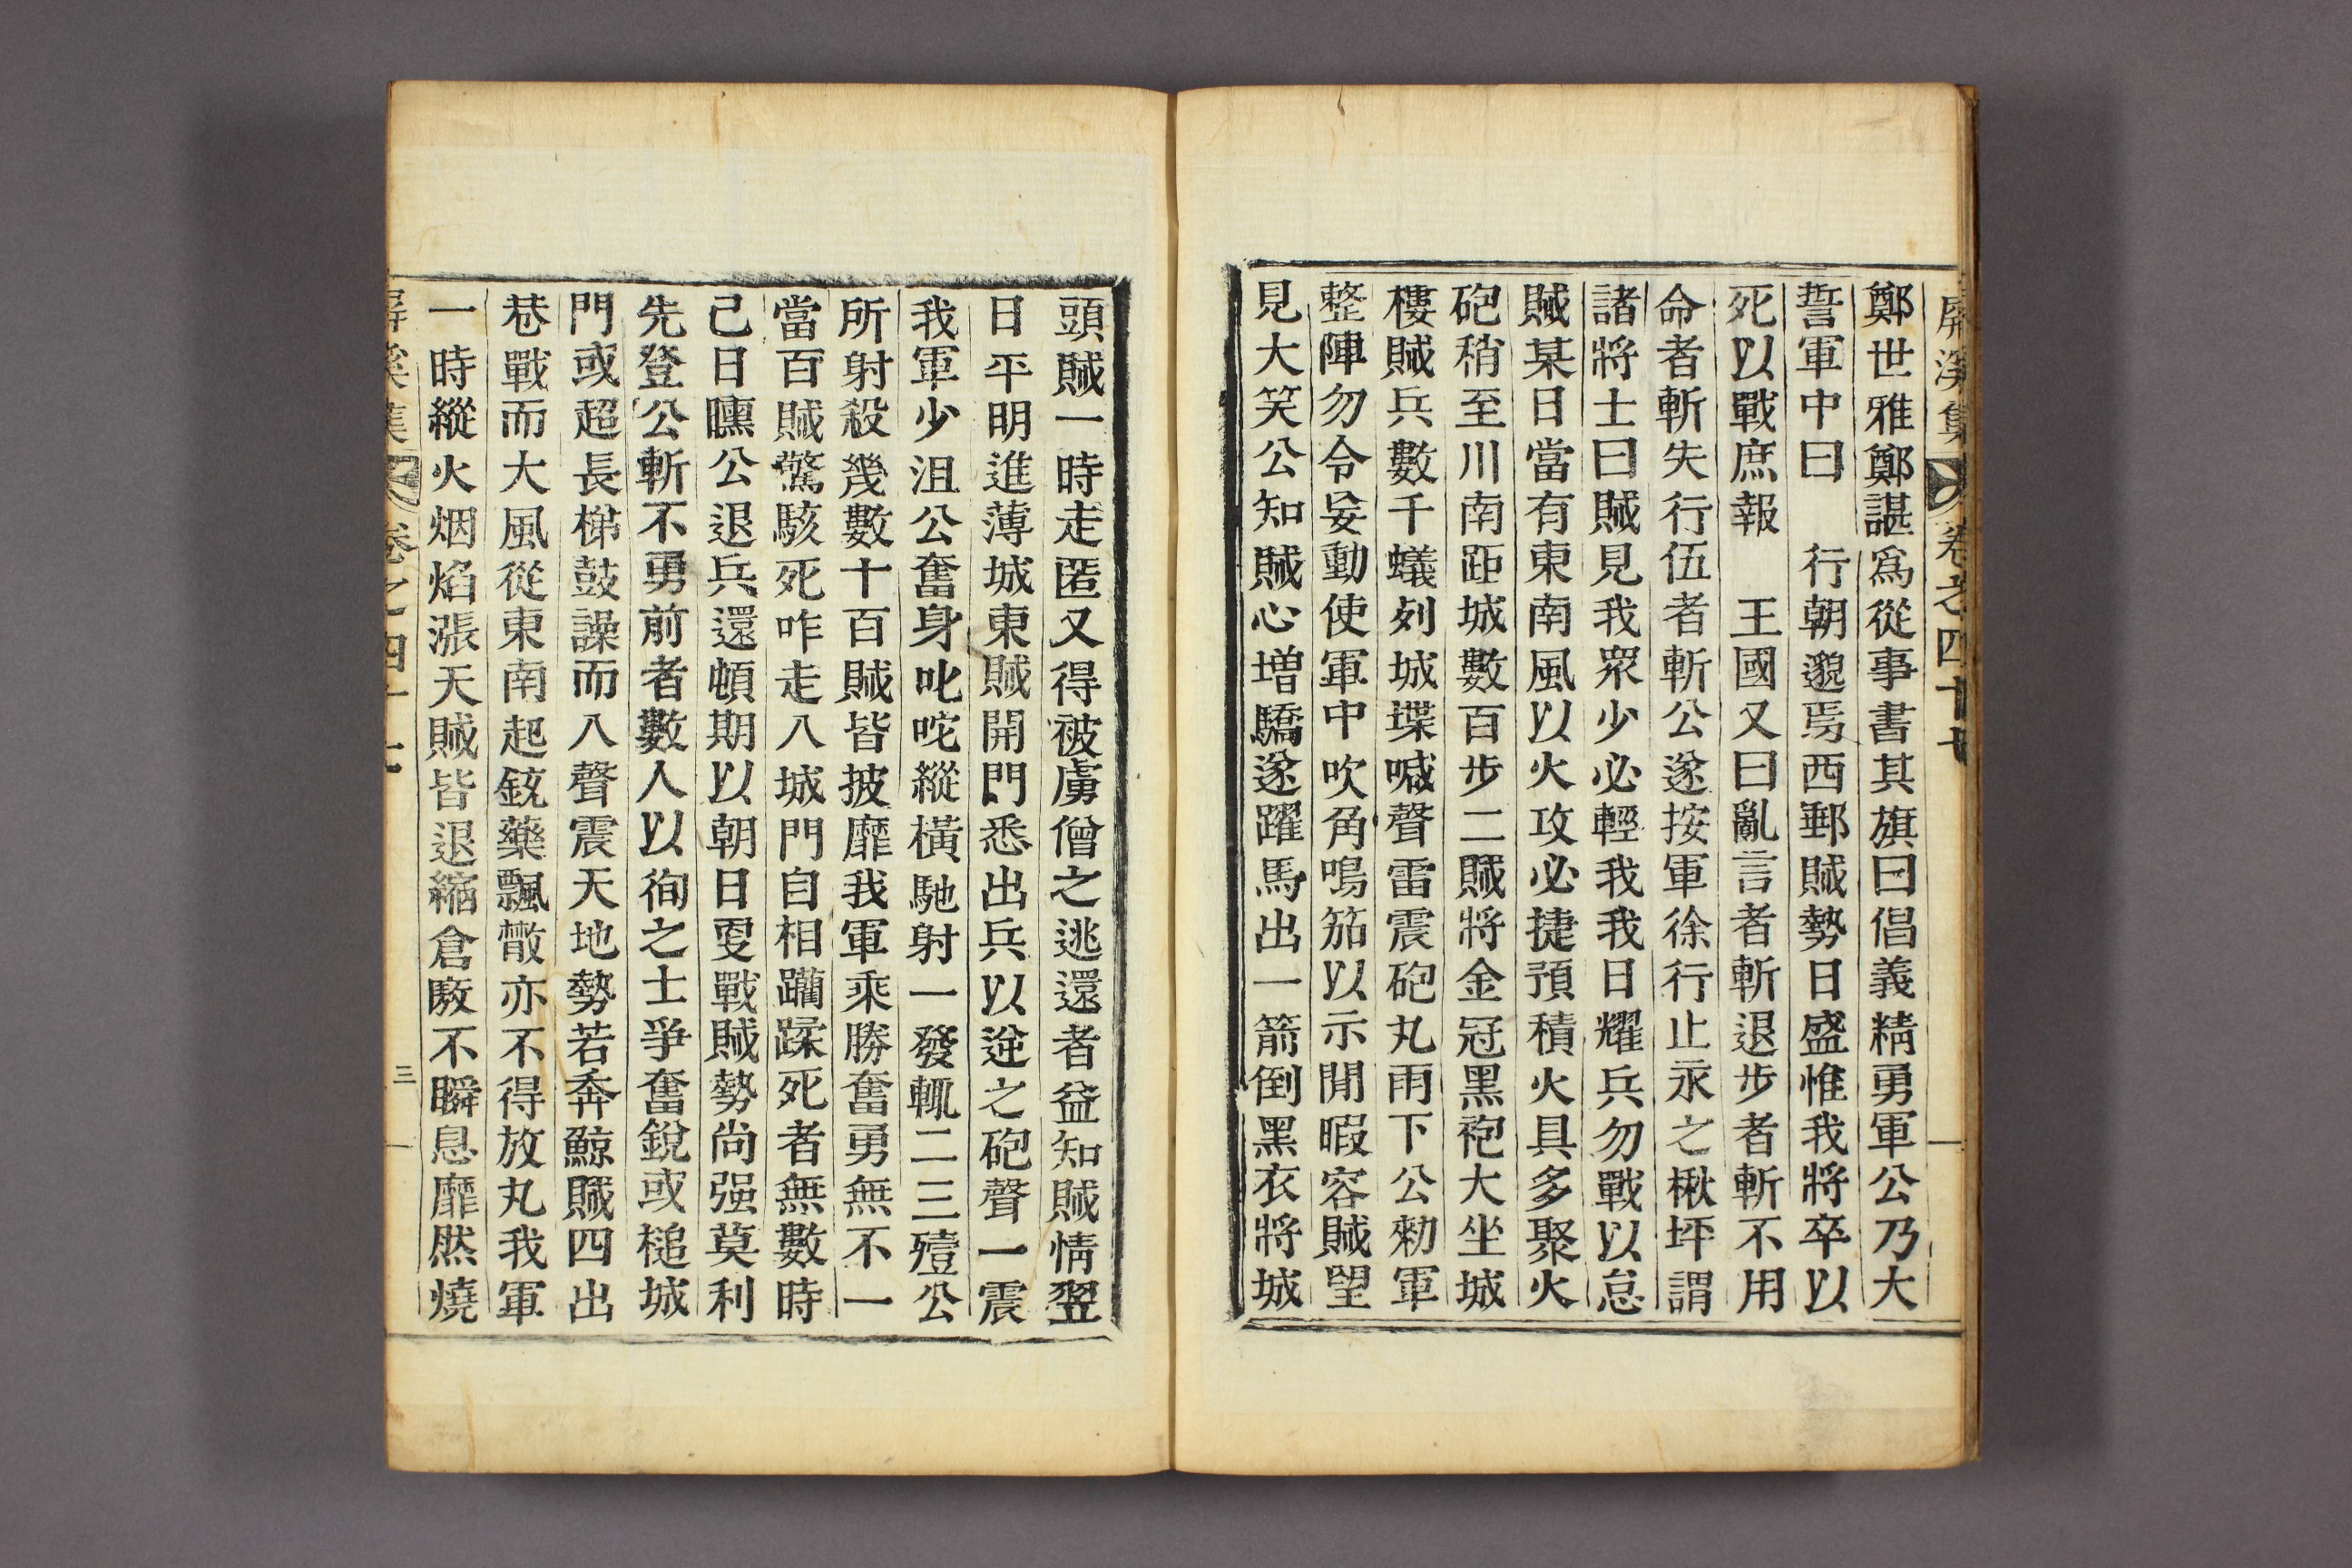 屛溪集 卷之四十七
鄭世雅鄭諶爲從事書其旗曰倡義精勇軍公乃大
誓軍中曰 行朝邈焉西郵賊勢日盛惟我將卒以
死以戰庶報 王國又曰亂言者斬退步者斬不用
命者斬失行伍者斬公遂按軍徐行止永之楸坪謂
諸將士曰賊見我衆少必輕我我日耀兵勿戰以怠
賊某日當有東南風以火攻必捷預積火具多聚火
砲稍至川南距城數百步二賊將金冠黑袍大坐城
樓賊兵數千蟻列城堞喊聲雷震砲丸雨下公勑軍
整陣勿令妄動使軍中吹角鳴笳以示閒暇容賊望
見大笑公知賊心增驕遂躍馬出一箭倒黑衣將城
頭賊一時走匿又得被虜僧之逃還者益知賊情翌
日平明進薄城東賊開門悉出兵以逆之砲聲一震
我軍少沮公奮身叱咤縱橫馳射一發輒二三殪公
所射殺幾數十百賊皆披靡我軍乘勝奮勇無不一
當百賊驚駭死咋走入城門自相躪蹂死者無數時
己日曛公退兵還頓期以朝日更戰賊勢尚强莫利
先登公斬不勇前者數人以徇之士爭奮銳或槌城
門或超長梯鼓譟而入聲震天地勢若奔鯨賊四出
巷戰而大風從東南起銃藥飄散亦不得放丸我軍
一時縱火烟焰漲天賊皆退縮倉廒不瞬息靡然燒
屛溪集 卷之四十七 三